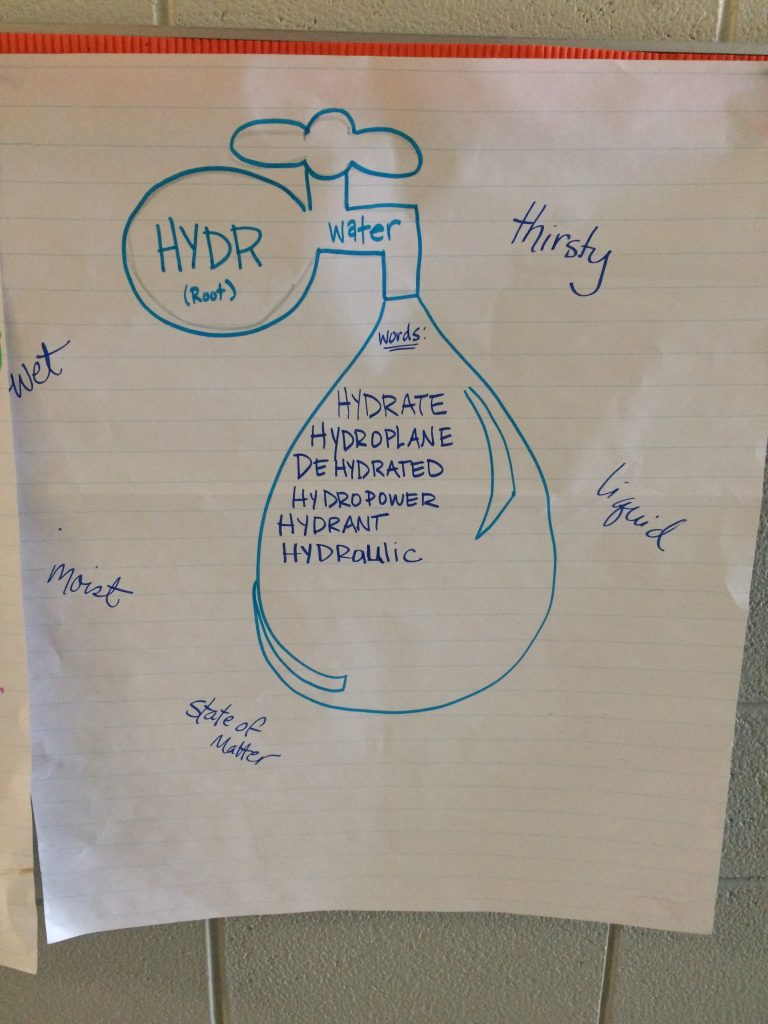 HYDR
(Root)
water
thirsty
words:
wet
HYDRATE
HYDROPLANE
DEHYDRATED
HYDROPOWER
HYDRANT
HYDRaulic
liquid
moist
State of
Matter